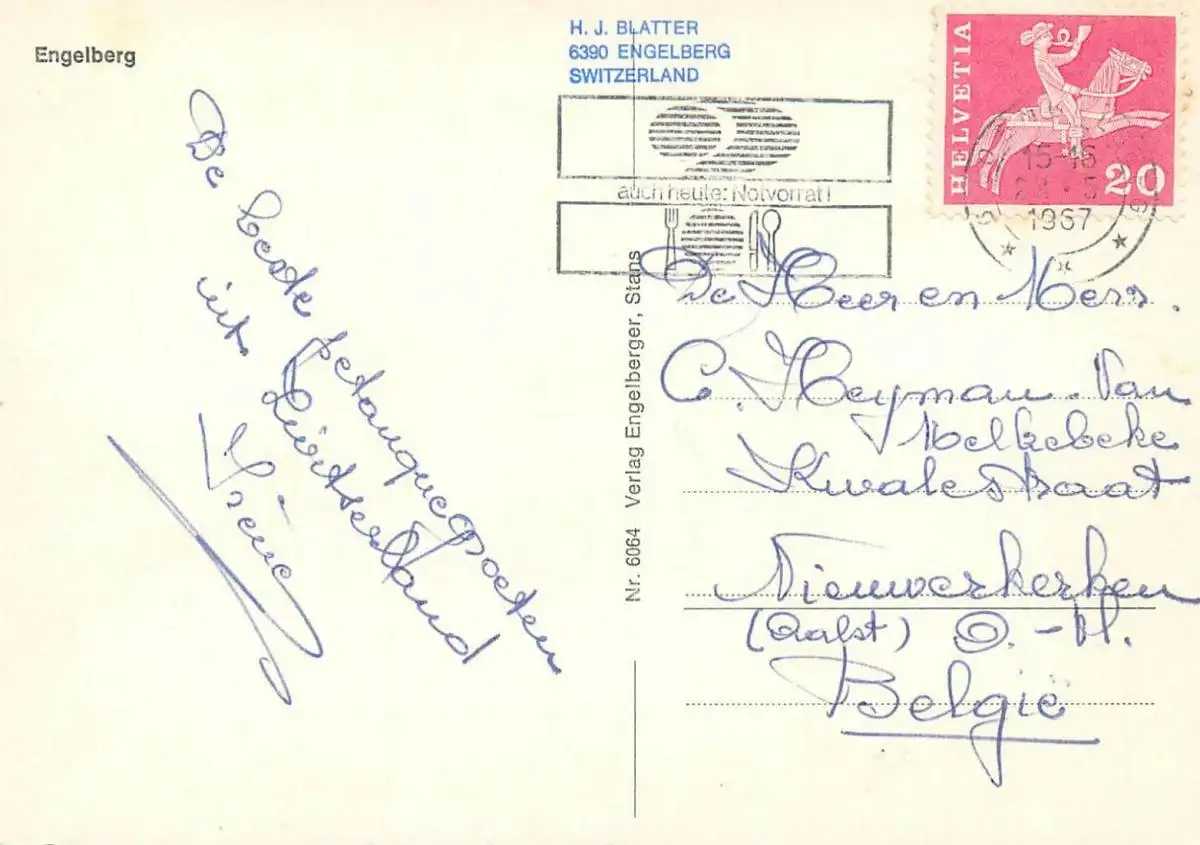 Engelberg
H. J. BLATTER
6390 ENGELBERG
SWITZERLAND
auch heute: Notvorrat!
HELVETIA
20
15-16
1967
De beste petanquegroeten
uit Zwitserland
Irène
Nr. 6064 Verlag Engelberger, Stans
De Heer en Mevr.
C. Heyman-Van
Melkebeke
Kwalestraat
Nieuwerkerken
(Aalst) O.-Vl.
België